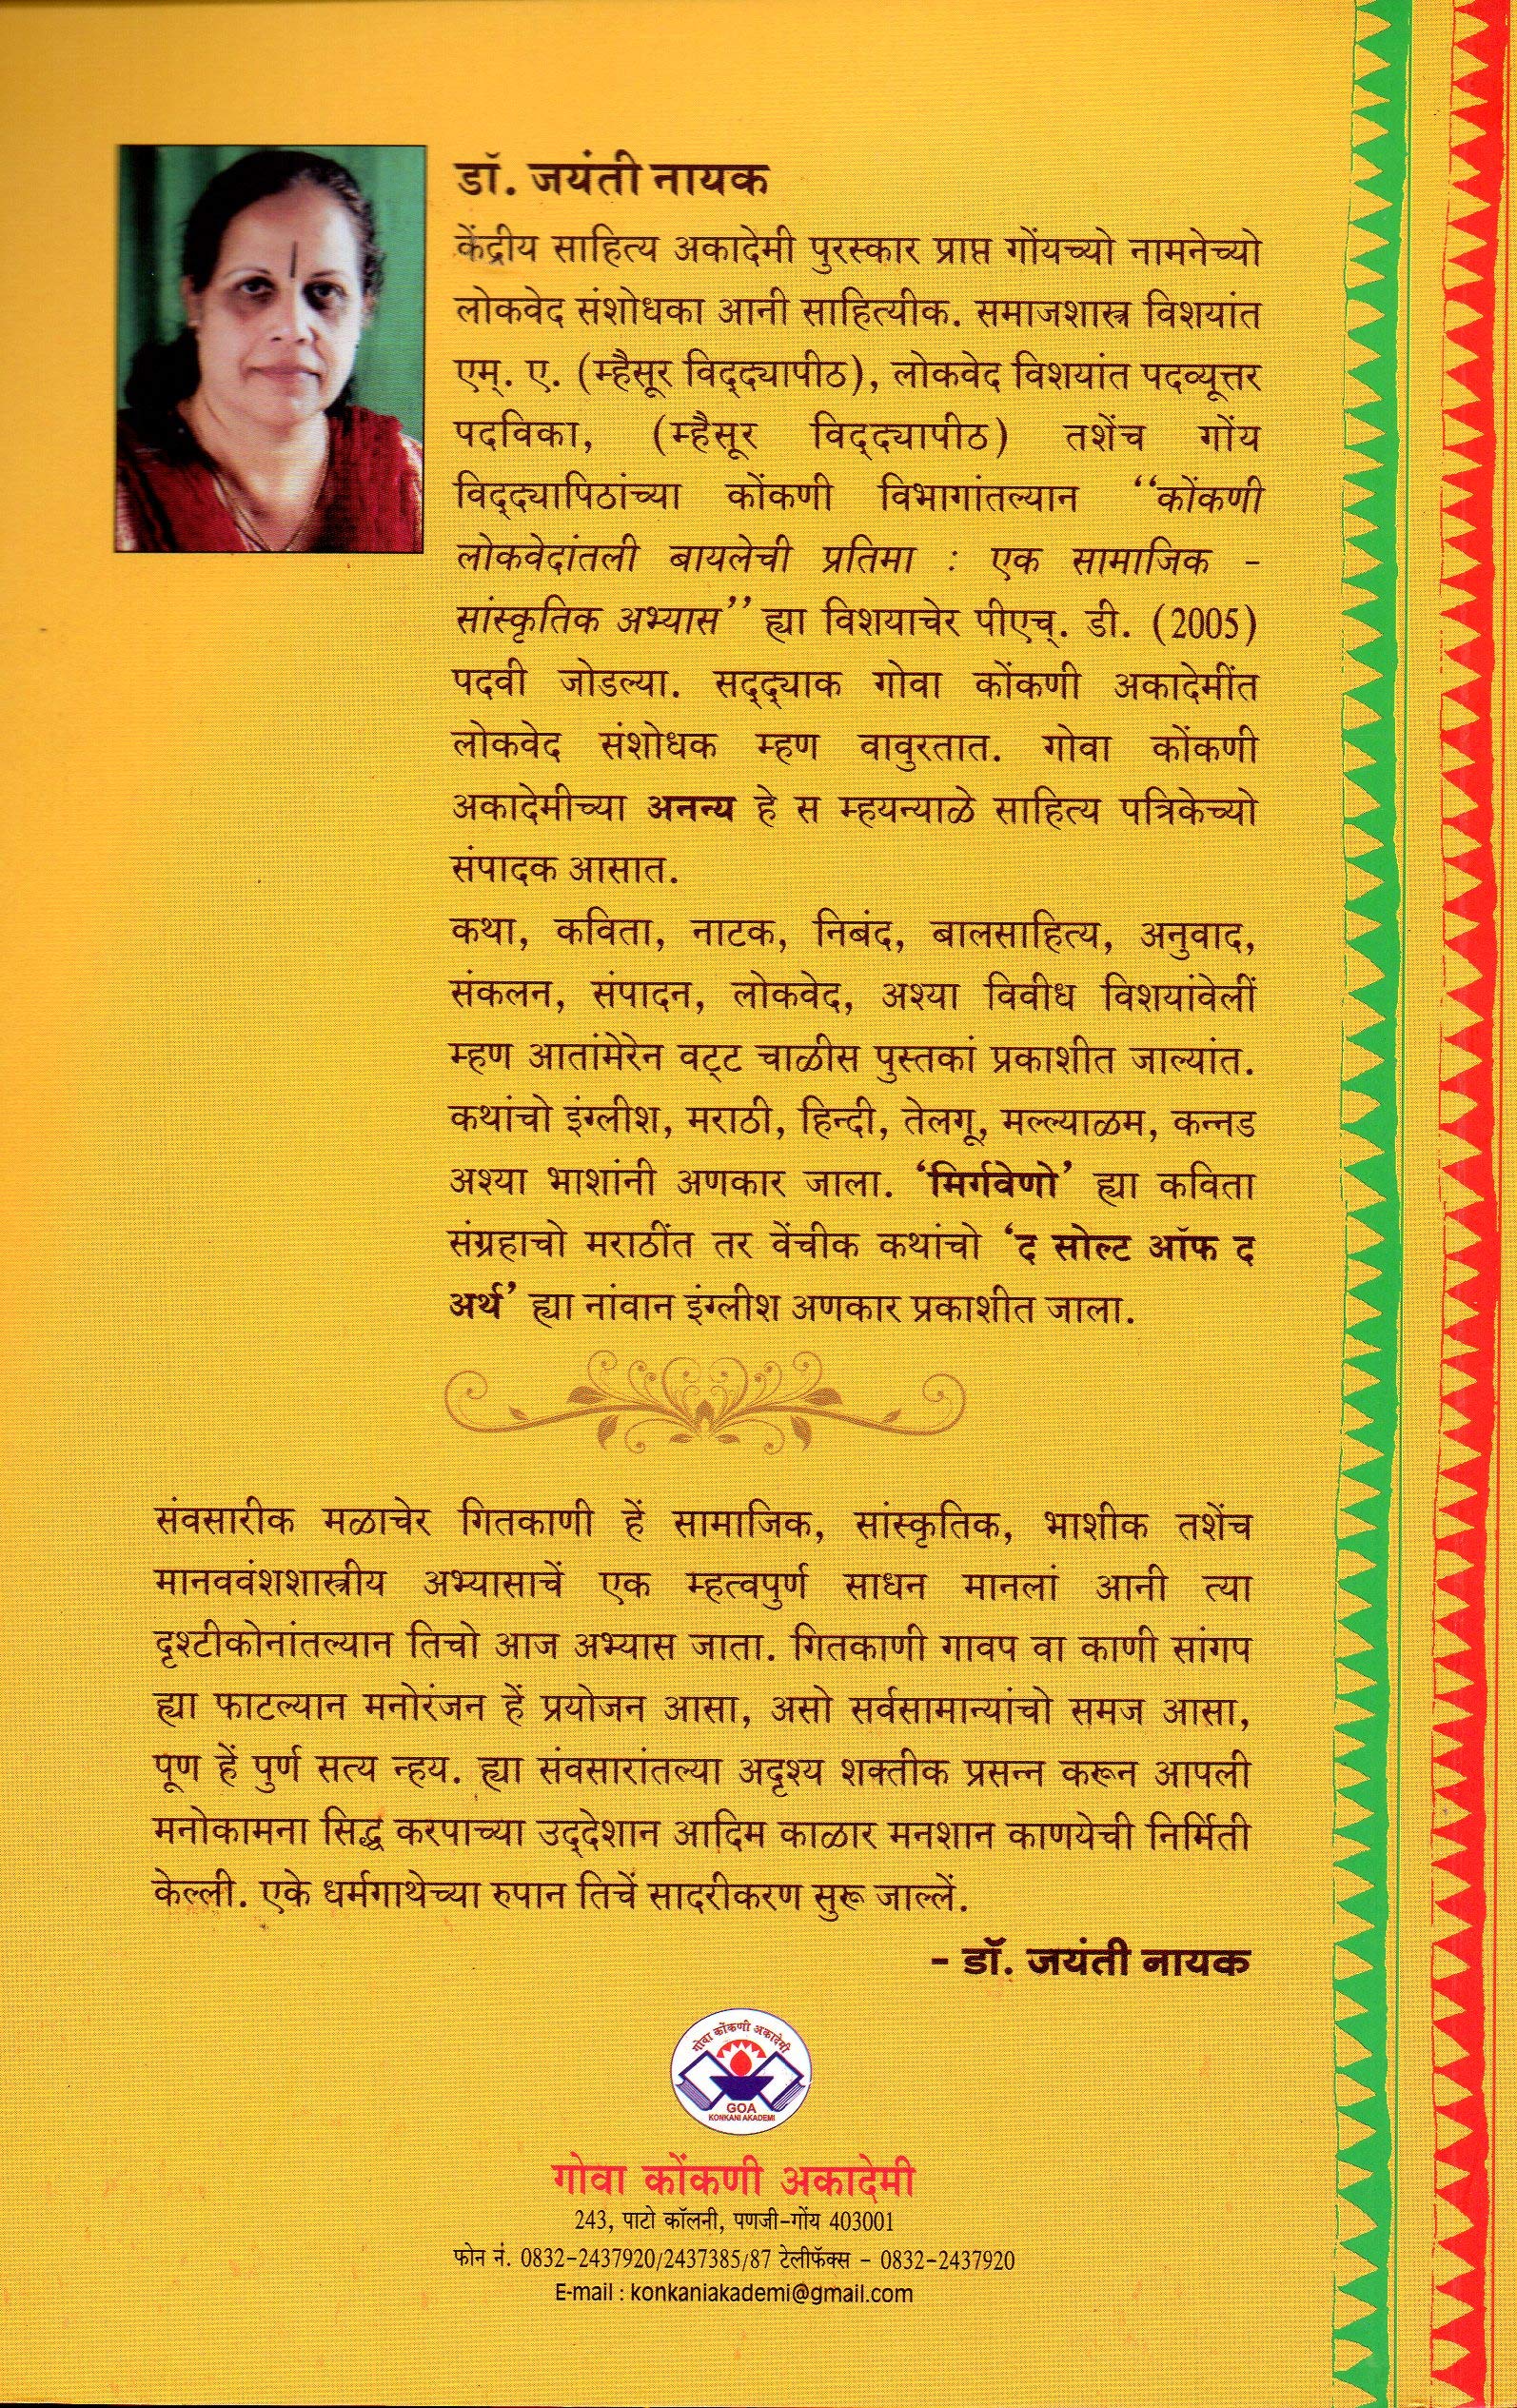 डॉ. जयंती नायक
केंद्रीय साहित्य अकादेमी पुरस्कार प्राप्त गोंयच्यो नामनेच्यो
लोकवेद संशोधका आनी साहित्यीक. समाजशास्त्र विशयांत
एम्. ए. (म्हैसूर विद्द्यापीठ), लोकवेद विशयांत पदव्यूत्तर
पदविका, (म्हैसूर विद्द्यापीठ) तशेंच गोंय
विद्द्यापिठांच्या कोंकणी विभागांतल्यान ‘‘कोंकणी
लोकवेदांतली बायलेची प्रतिमा : एक सामाजिक -
सांस्कृतिक अभ्यास’’ ह्या विशयाचेर पीएच्. डी. (2005)
पदवी जोडल्या. सद्द्याक गोवा कोंकणी अकादेमींत
लोकवेद संशोधक म्हण वावुरतात. गोवा कोंकणी
अकादेमीच्या अनन्य हे स म्हयन्याळे साहित्य पत्रिकेच्यो
संपादक आसात.
कथा, कविता, नाटक, निबंद, बालसाहित्य, अनुवाद,
संकलन, संपादन, लोकवेद, अश्या विवीध विशयांवेलीं
म्हण आतांमेरेन वट्ट चाळीस पुस्तकां प्रकाशीत जाल्यांत.
कथांचो इंग्लीश, मराठी, हिन्दी, तेलगू, मल्ल्याळम, कन्नड
अश्या भाशांनी अणकार जाला. ‘मिर्गवेणो’ ह्या कविता
संग्रहाचो मराठींत तर वेंचीक कथांचो ‘द सोल्ट ऑफ द
अर्थ’ ह्या नांवान इंग्लीश अणकार प्रकाशीत जाला.
संवसारीक मळाचेर गितकाणी हें सामाजिक, सांस्कृतिक, भाशीक तशेंच
मानववंशशास्त्रीय अभ्यासाचें एक म्हत्वपुर्ण साधन मानलां आनी त्या
दृश्टीकोनांतल्यान तिचो आज अभ्यास जाता. गितकाणी गावप वा काणी सांगप
ह्या फाटल्यान मनोरंजन हें प्रयोजन आसा, असो सर्वसामान्यांचो समज आसा,
पूण हें पुर्ण सत्य न्हय. ह्या संवसारांतल्या अदृश्य शक्तीक प्रसन्न करून आपली
मनोकामना सिद्ध करपाच्या उद्देशान आदिम काळार मनशान काणयेची निर्मिती
केल्ली. एके धर्मगाथेच्या रुपान तिचें सादरीकरण सुरू जाल्लें.
- डॉ. जयंती नायक
गोवा कोंकणी अकादेमी
GOA
KONKANI AKADEMI
गोवा कोंकणी अकादेमी
243, पाटो कॉलनी, पणजी-गोंय 403001
फोन नं. 0832-2437920/2437385/87 टेलीफॅक्स - 0832-2437920
E-mail : konkaniakademi@gmail.com